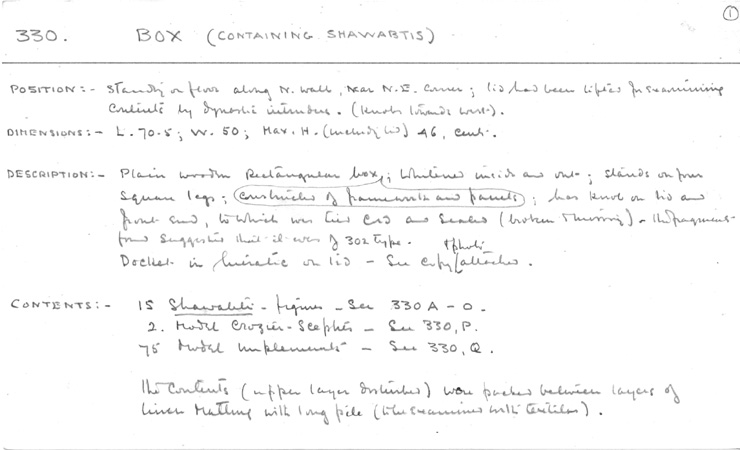 ①
330. BOX (CONTAINING SHAWABTIS)
POSITION:- Standing on floor along N. wall, near N.E. corner; lid had been lifted for examining
contents by dynastic intruders. (Knobs towards west).
DIMENSIONS:- L. 70.5; W. 50; Max. H. (including lid) 46, cent.
DESCRIPTION:- Plain wooden Rectangular box; whitened inside and out; stands on four
square legs; constructed of framework and panels; has knob on lid and
front end, to which was tied cord and sealed (broken & missing) - the fragments
found suggested that it was of 302 type. & photo
Docket in hieratic on lid - See copy attached.
CONTENTS:- 15 Shawabti-figures - See 330 A - O.
2. Model Crozier-Sceptres - See 330, P.
75 Model Implements - See 330, Q.
The contents (upper layer disturbed) were packed between layers of
linen matting with long pile (to be examined with textiles).